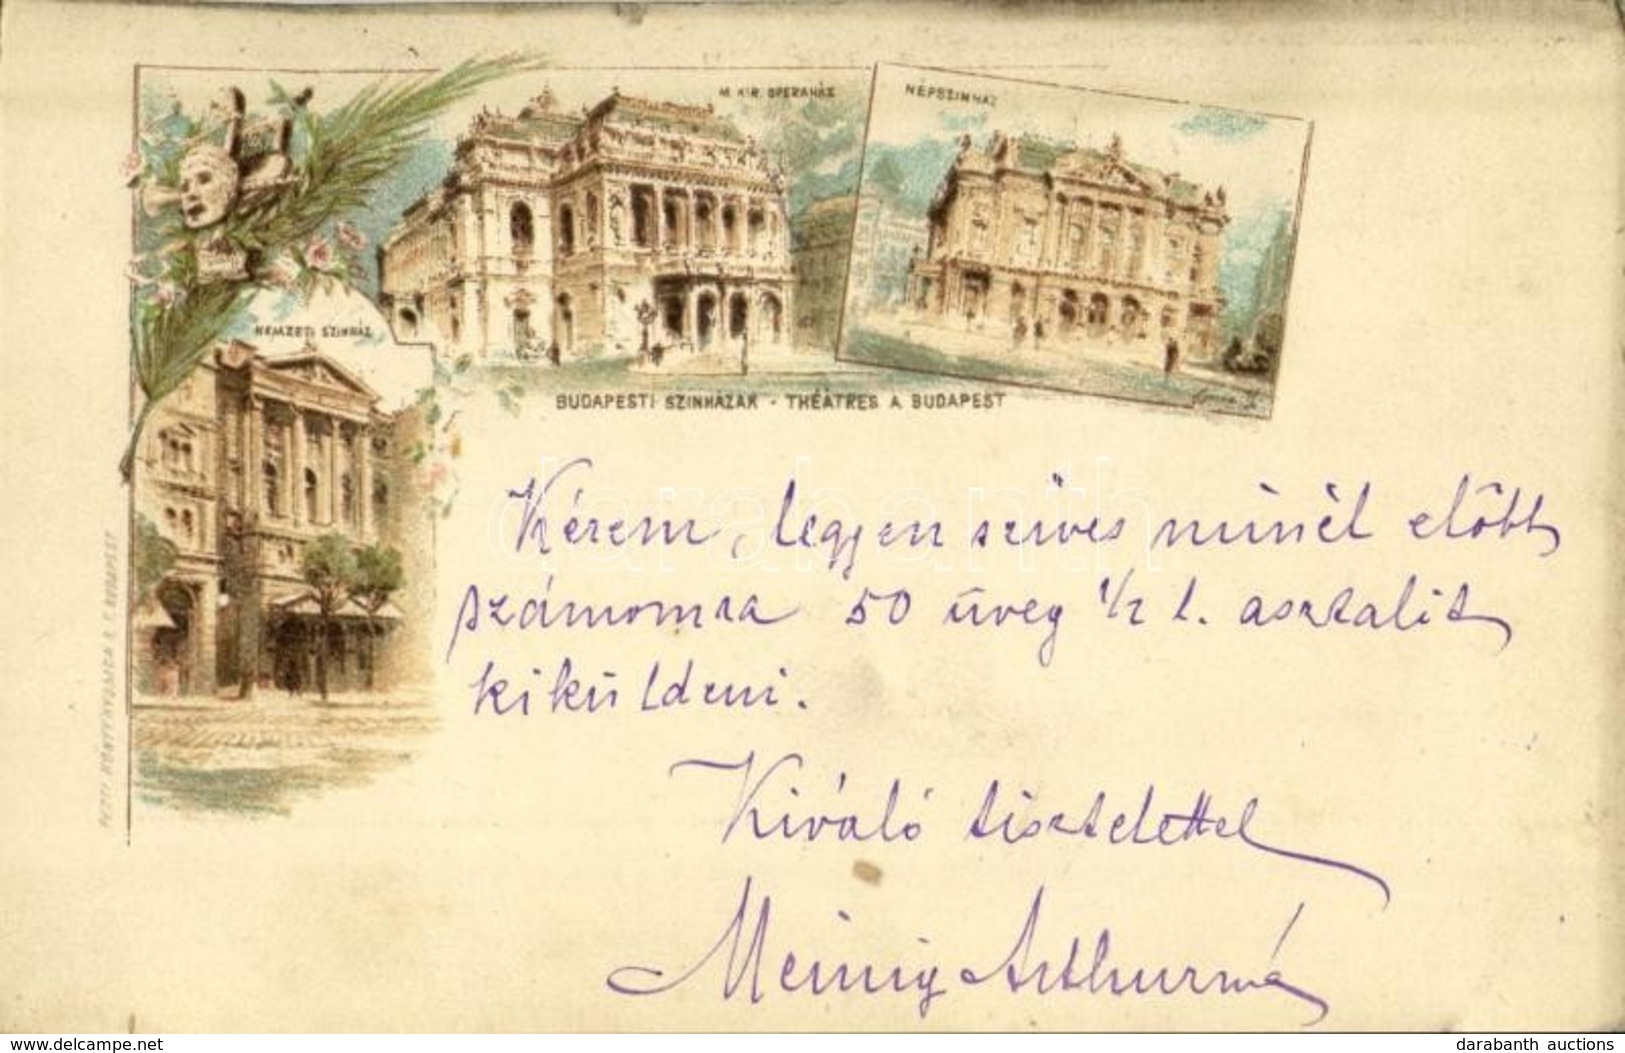 M. KIR. OPERAHÁZ
NÉPSZINHÁZ
NEMZETI SZINHÁZ
BUDAPESTI SZINHÁZAK - THÉATRES A BUDAPEST
Kérem, legyen szives minél előbb
számomra 50 üveg 1/2 l. asztalit
kiküldeni.
Kiváló tisztelettel
Meinig Arthurné
PESTI KÖNYVNYOMDA R. T. BUDAPEST
darabanth
www.delcampe.net
darabanth auctions